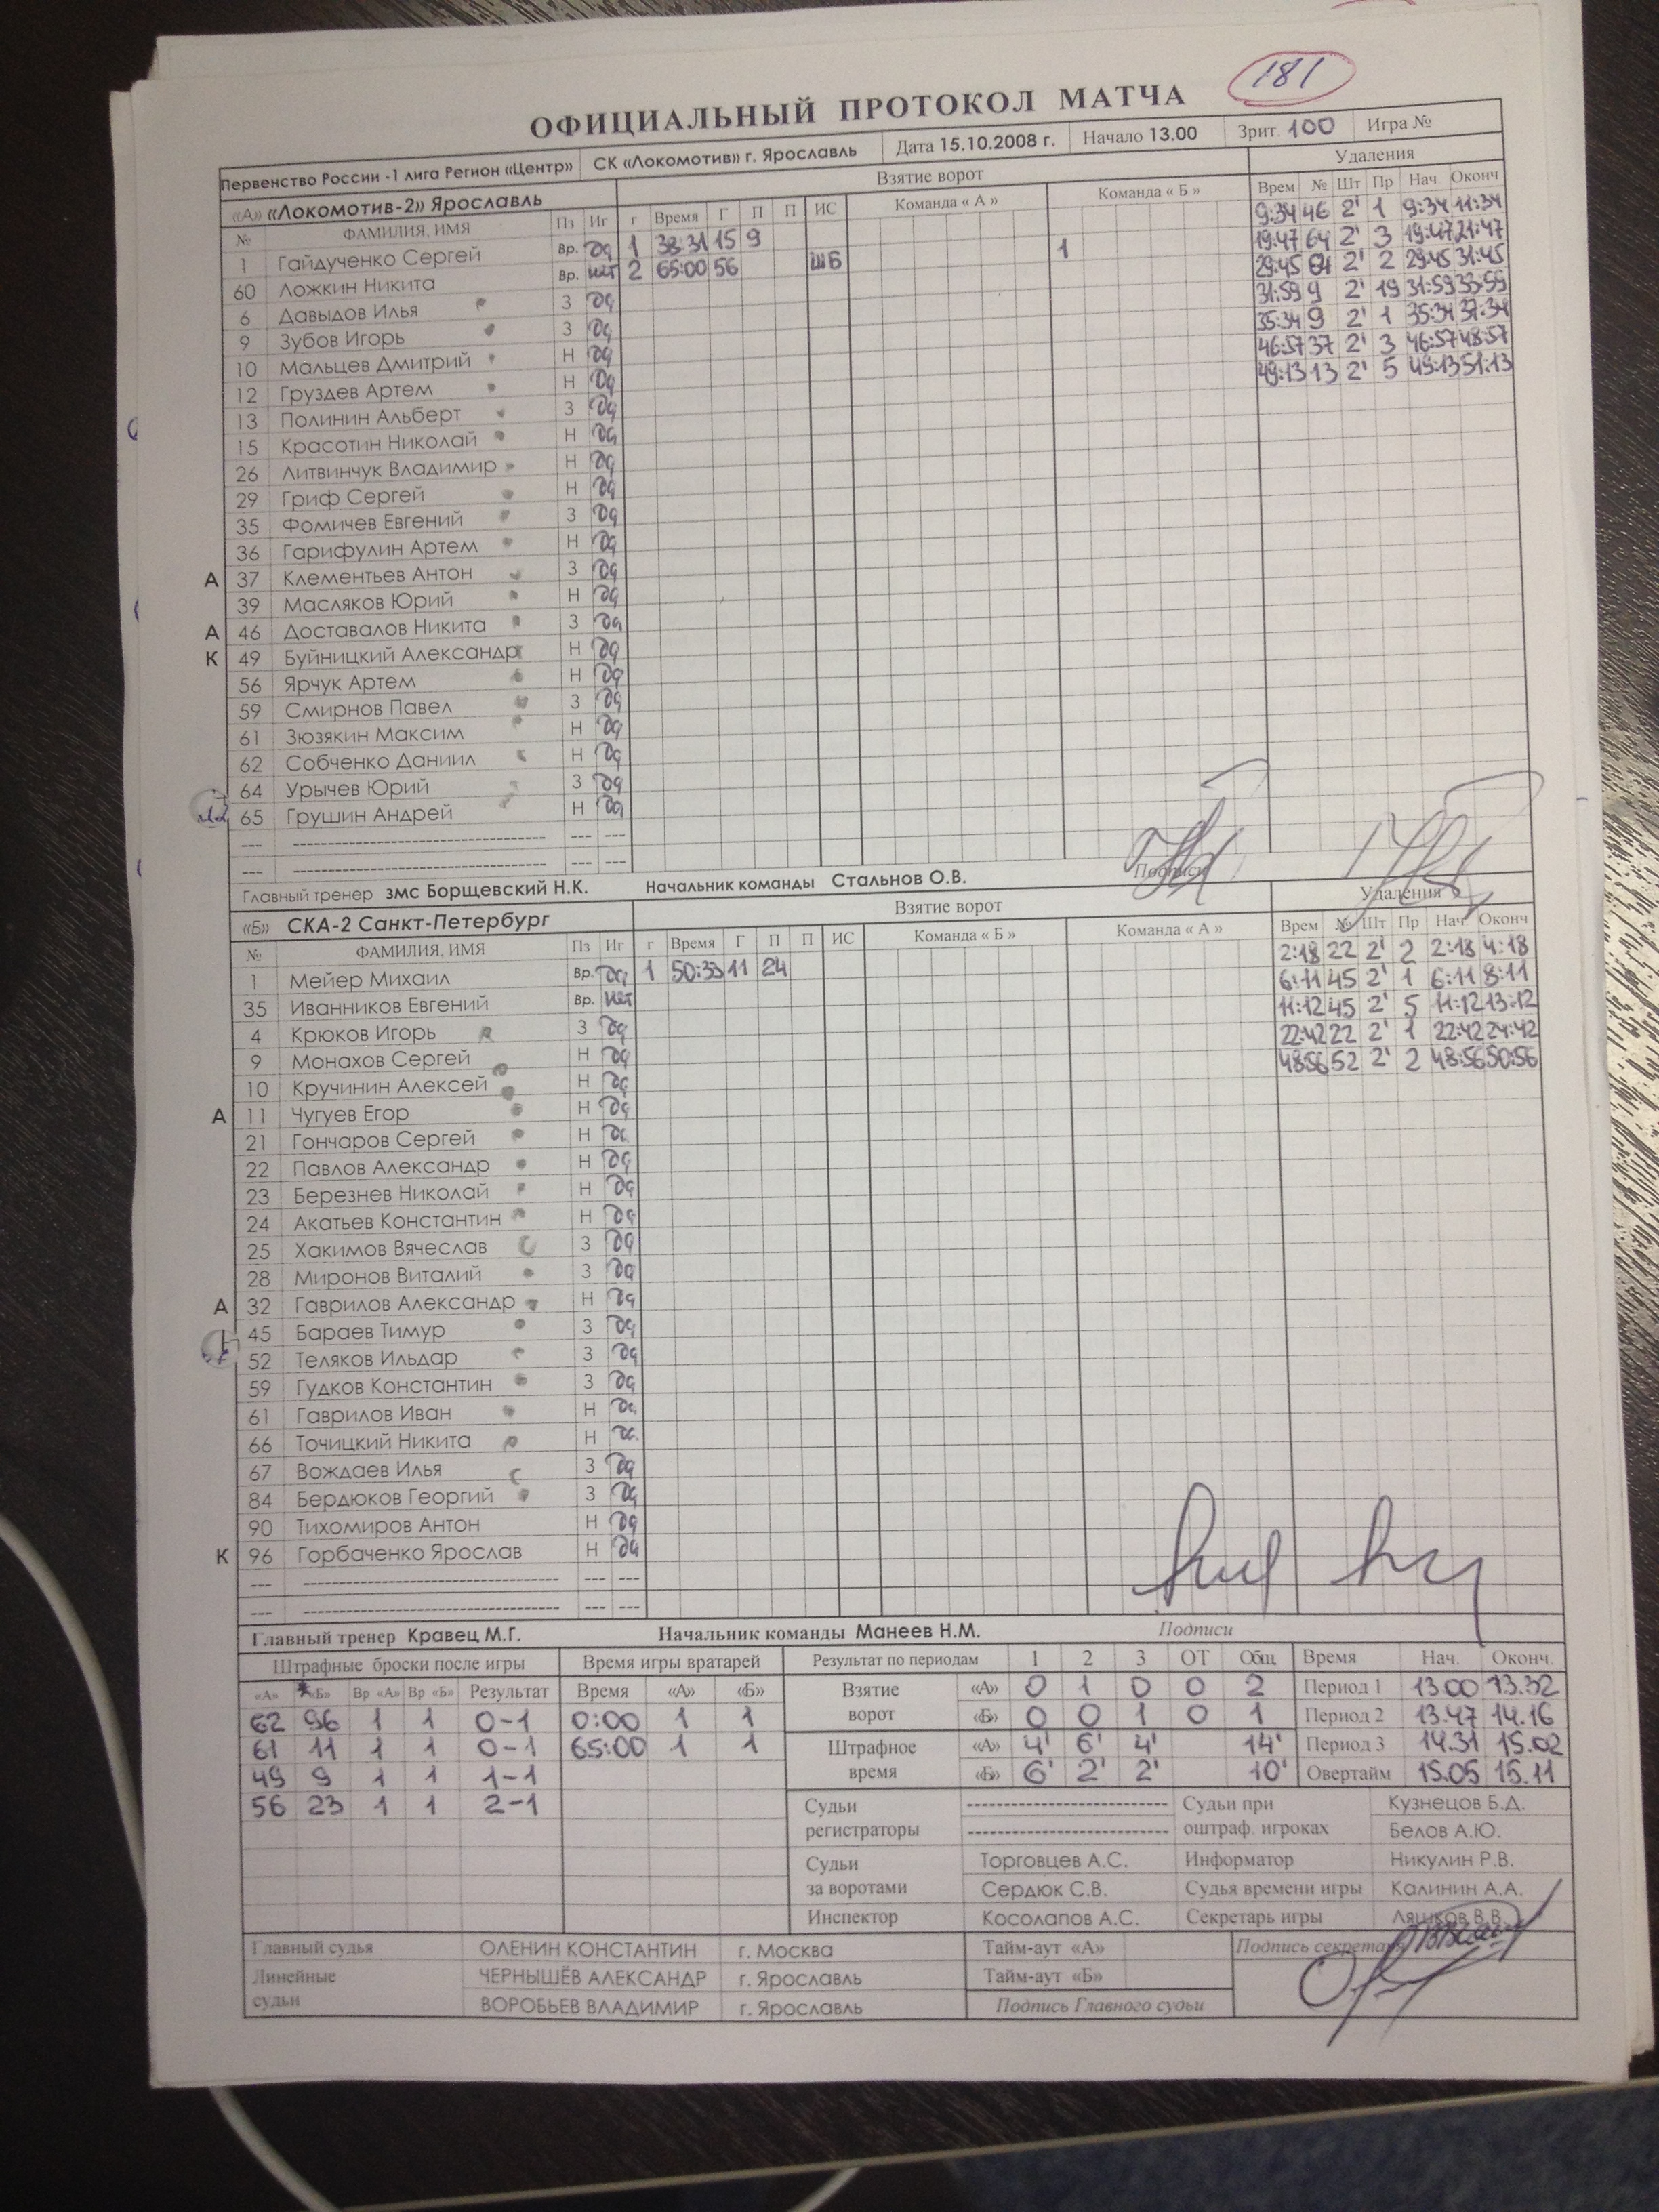 181
ОФИЦИАЛЬНЫЙ ПРОТОКОЛ МАТЧА
Первенство России -1 лига Регион «Центр» СК «Локомотив» г. Ярославль Дата 15.10.2008 г. Начало 13.00 Зрит. 100 Игра №
«А» «Локомотив-2» Ярославль Взятие ворот Удаления
№ ФАМИЛИЯ, ИМЯ Пз Иг г Время Г П П ИС Команда « А » Команда « Б » Врем № Шт Пр Нач Оконч
1 Гайдученко Сергей Вр. да 1 38:31 15 9 9:34 46 2' 1 9:34 11:34
60 Ложкин Никита Вр. нет 2 65:00 56 ШБ 1 19:47 64 2' 3 19:47 21:47
6 Давыдов Илья З да 29:45 61 2' 2 29:45 31:45
9 Зубов Игорь З да 31:59 9 2' 19 31:59 33:59
10 Мальцев Дмитрий Н да 35:34 9 2' 1 35:34 37:34
12 Груздев Артем Н да 46:57 37 2' 3 46:57 48:57
13 Полинин Альберт З да 49:13 13 2' 5 49:13 51:13
15 Красотин Николай Н да
26 Литвинчук Владимир Н да
29 Гриф Сергей Н да
35 Фомичев Евгений З да
36 Гарифулин Артем Н да
А 37 Клементьев Антон З да
39 Масляков Юрий Н да
А 46 Доставалов Никита З да
К 49 Буйницкий Александр Н да
56 Ярчук Артем Н да
59 Смирнов Павел З да
61 Зюзякин Максим Н да
62 Собченко Даниил Н да
64 Урычев Юрий З да
65 Грушин Андрей Н да
--- ----------------------------- --- ---
--- ----------------------------- --- ---
Главный тренер змс Борщевский Н.К. Начальник команды Стальнов О.В. Подписи
«Б» СКА-2 Санкт-Петербург Взятие ворот Удаления
№ ФАМИЛИЯ, ИМЯ Пз Иг г Время Г П П ИС Команда « Б » Команда « А » Врем № Шт Пр Нач Оконч
1 Мейер Михаил Вр. да 1 50:33 11 24 2:18 22 2' 2 2:18 4:18
35 Иванников Евгений Вр. нет 6:11 45 2' 1 6:11 8:11
4 Крюков Игорь З да 11:12 45 2' 5 11:12 13:12
9 Монахов Сергей Н да 22:42 22 2' 1 22:42 24:42
10 Кручинин Алексей Н да 48:56 52 2' 2 48:56 50:56
А 11 Чугуев Егор Н да
21 Гончаров Сергей Н да
22 Павлов Александр Н да
23 Березнев Николай Н да
24 Акатьев Константин Н да
25 Хакимов Вячеслав З да
28 Миронов Виталий З да
А 32 Гаврилов Александр Н да
45 Бараев Тимур З да
52 Теляков Ильдар З да
59 Гудков Константин З да
61 Гаврилов Иван Н да
66 Точицкий Никита Н да
67 Вождаев Илья З да
84 Бердюков Георгий З да
90 Тихомиров Антон Н да
К 96 Горбаченко Ярослав Н да
--- ----------------------------- --- ---
--- ----------------------------- --- ---
Главный тренер Кравец М.Г. Начальник команды Манеев Н.М. Подписи
Штрафные броски после игры Время игры вратарей Результат по периодам 1 2 3 ОТ Общ Время Нач. Оконч.
«А» «Б» Вр «А» Вр «Б» Результат Время «А» «Б» Взятие ворот «А» 0 1 0 0 2 Период 1 13.00 13.32
62 96 1 1 0-1 0:00 1 1 «Б» 0 0 1 0 1 Период 2 13.47 14.16
61 11 1 1 0-1 65:00 1 1 Штрафное время «А» 4' 6' 4' 14' Период 3 14.31 15.02
49 9 1 1 1-1 «Б» 6' 2' 2' 10' Овертайм 15.05 15.11
56 23 1 1 2-1 Судьи регистраторы ---------------------------- Судьи при оштраф. игроках Кузнецов Б.Д.
---------------------------- Белов А.Ю.
Судьи за воротами Торговцев А.С. Информатор Никулин Р.В.
Сердюк С.В. Судья времени игры Калинин А.А.
Инспектор Косолапов А.С. Секретарь игры Ляшков В.В.
Главный судья ОЛЕНИН КОНСТАНТИН г. Москва Тайм-аут «А» Подпись секретаря
Линейные судьи ЧЕРНЫШЁВ АЛЕКСАНДР г. Ярославль Тайм-аут «Б»
ВОРОБЬЕВ ВЛАДИМИР г. Ярославль Подпись Главного судьи